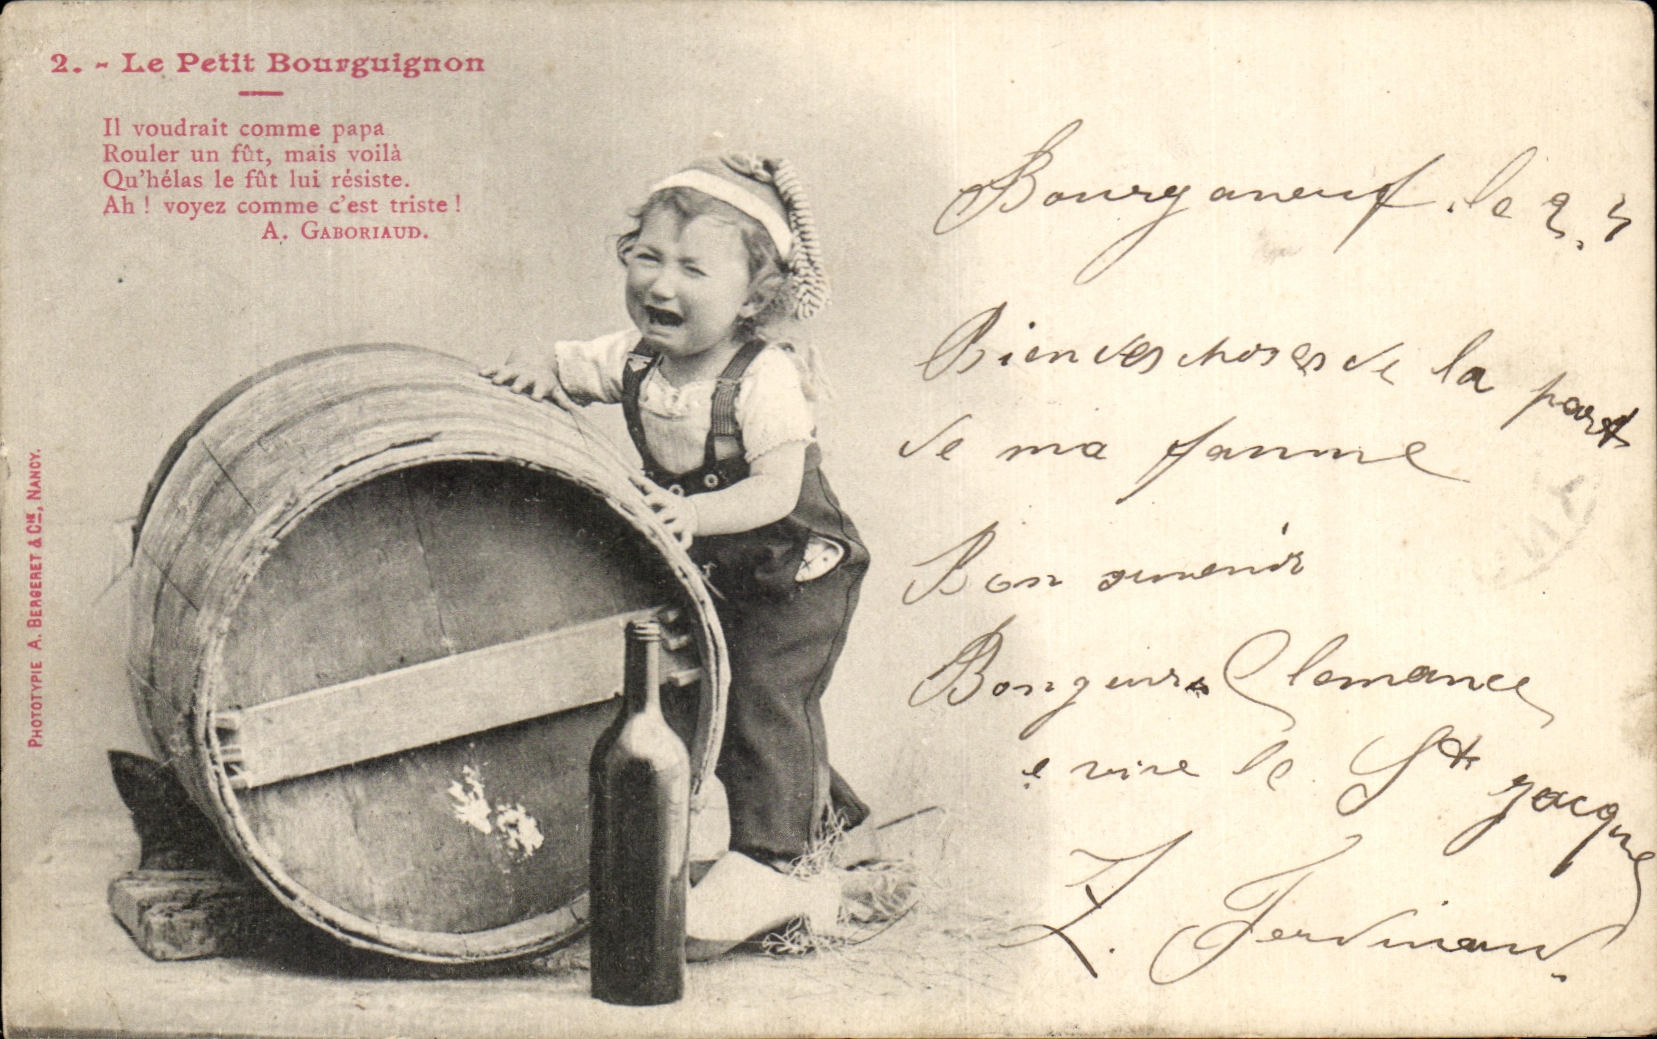 2. - Le Petit Bourguignon
Il voudrait comme papa
Rouler un fût, mais voilà
Qu'hélas le fût lui résiste.
Ah ! voyez comme c'est triste !
A. GABORIAUD.
PHOTOTYPIE A. BERGERET & Cie, NANCY.
Bourganeuf, le 2.
Bien des choses de la part
de ma famme
Bon
Clemance
vive le St Jacque
Ferdinand.